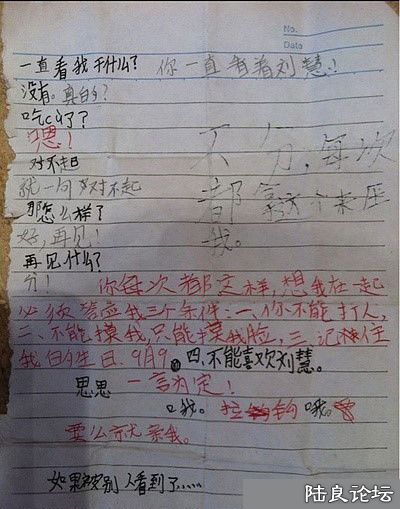 No.
Date
一直看我干什么？ 你一直看着刘慧！
没有。真的？
吃cù了？
嗯！
对不起
说一句对不起
那怎么样？
好，再见！
再见什么？
分！
不分，每次
都拿这个来压
我。
你每次都这样，想我在一起
必须答应我三个条件：一、你不能打人，
二、不能摸我，只能摸我脸，三、记住
我的生日．9月9 四、不能喜欢刘慧。
思思 一言为定！
口我。拉钩 哦。
要么亲我。
如果被别人看到了.....
陆良论坛